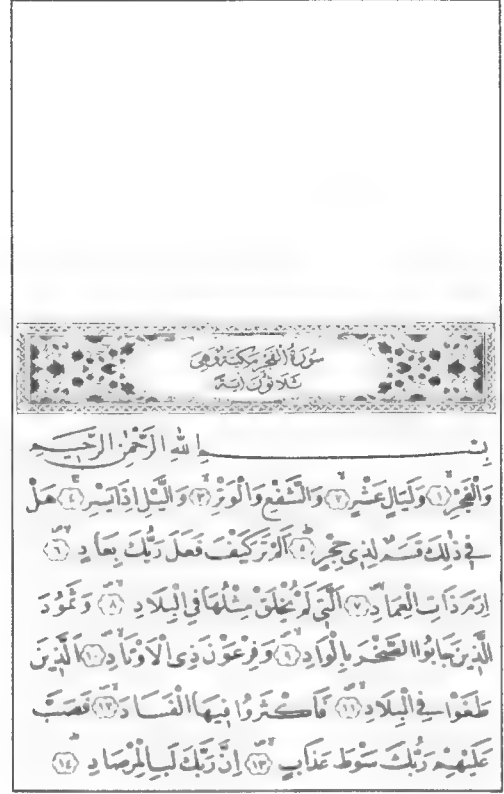 سُورَةُ الْفَجْرِ مَكِّيَّةٌ وَهِيَ
ثَلَاثُونَ اٰيَةً
بِسْمِ اللّٰهِ الرَّحْمٰنِ الرَّحِيمِ
وَالْفَجْرِۙ ﴿١﴾ وَلَيَالٍ عَشْرٍۙ ﴿٢﴾ وَالشَّفْعِ وَالْوَتْرِۙ ﴿٣﴾ وَالَّيْلِ اِذَا يَسْرِۚ ﴿٤﴾ هَلْ
فِي ذٰلِكَ قَسَمٌ لِذِي حِجْرٍۜ ﴿٥﴾ اَلَمْ تَرَ كَيْفَ فَعَلَ رَبُّكَ بِعَادٍۙ ﴿٦﴾
اِرَمَ ذَاتِ الْعِمَادِۙ ﴿٧﴾ اَلَّتِي لَمْ يُخْلَقْ مِثْلُهَا فِي الْبِلَادِۙ ﴿٨﴾ وَثَمُودَ
الَّذِينَ جَابُوا الصَّخْرَ بِالْوَادِۙ ﴿٩﴾ وَفِرْعَوْنَ ذِي الْاَوْتَادِۙ ﴿١٠﴾ اَلَّذِينَ
طَغَوْا فِي الْبِلَادِۙ ﴿١١﴾ فَاَكْثَرُوا فِيهَا الْفَسَادَۙ ﴿١٢﴾ فَصَبَّ
عَلَيْهِمْ رَبُّكَ سَوْطَ عَذَابٍۚ ﴿١٣﴾ اِنَّ رَبَّكَ لَبِالْمِرْصَادِۜ ﴿١٤﴾